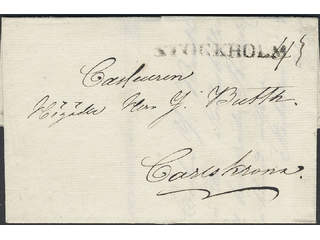 STOCKHOLM
Casseuren
Högädle Herr J. Butth.
Carlskrona.